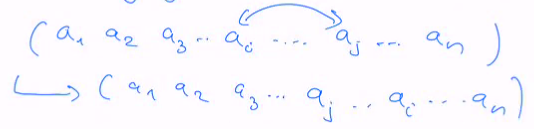 ( a₁ a₂ a₃ .. aᵢ .... aⱼ ... aₙ )
↳ ( a₁ a₂ a₃ ... aⱼ .. aᵢ ... aₙ )